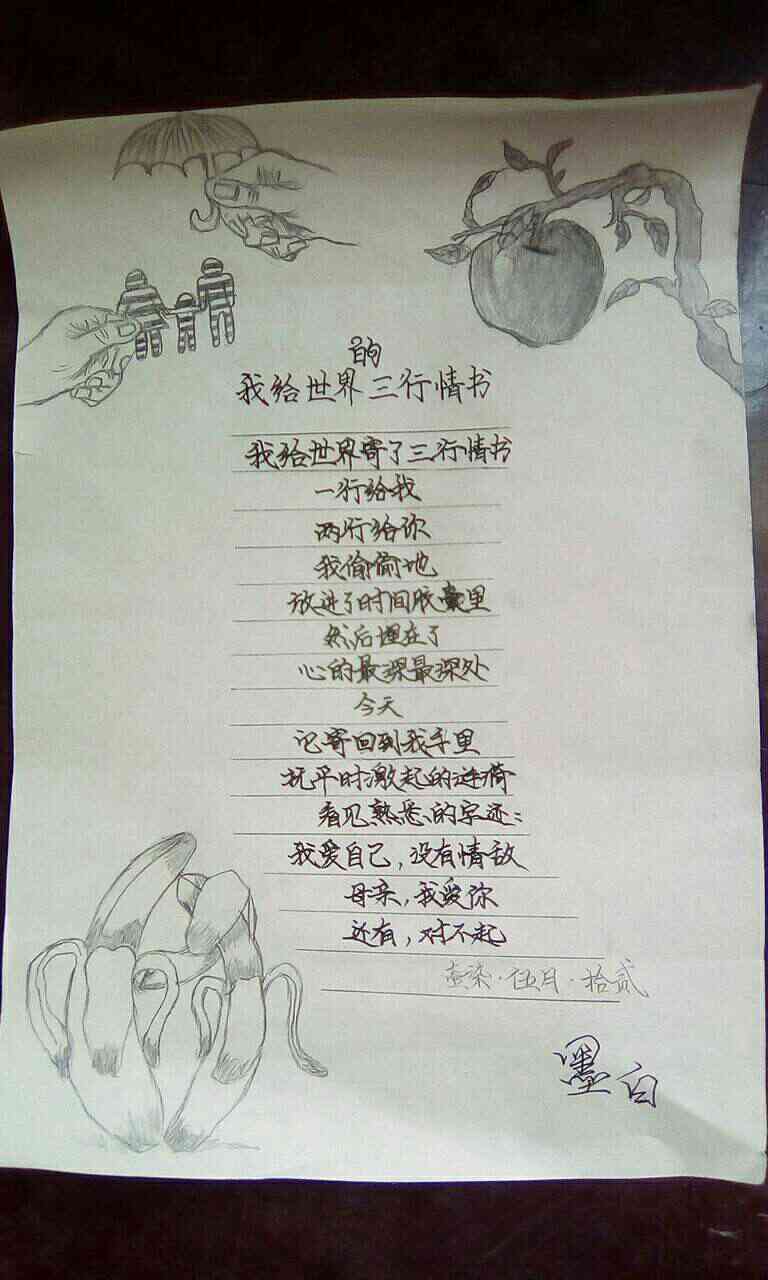 的
我给世界三行情书
我给世界寄了三行情书
一行给我
两行给你
我偷偷地
放进了时间胶囊里
然后埋在了
心的最深最深处
今天
它寄回到我手里
抚平时激起的涟漪
看见熟悉的字迹：
我爱自己，没有情敌
母亲，我爱你
还有，对不起
壹柒·伍月·拾贰
墨白